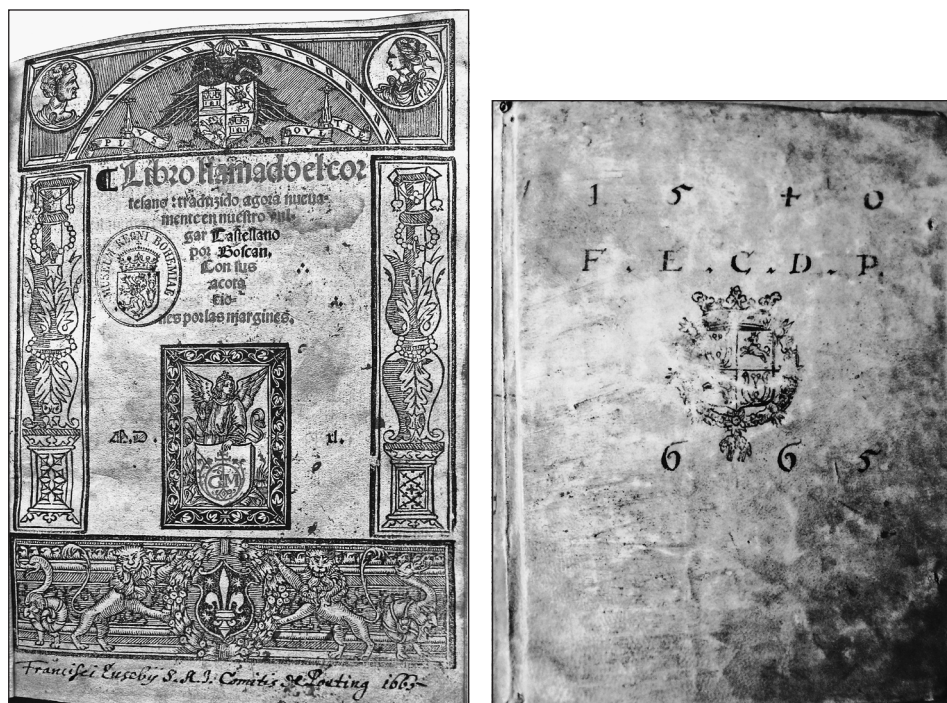 PLVS OVLTRE
¶ Libro llamado el cor
tesano: traduzido agora nueua-
mente en nuestro vul-
gar Castellano
por Boscan.
Con sus
acota
cio-
nes por las margines.
MUSEUM REGNI BOHEMIAE
M.D. xl.
Francisci Eusebij S.R.I. Comitis de Potting 1665
1 5 4 0
F. E. C. D. P.
6 6 5